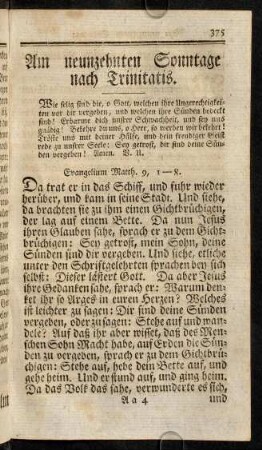 375
Am neunzehnten Sonntage
nach Trinitatis.
Wie selig sind die, o Gott, welchen ihre Ungerechtigkei-
ten vor dir vergeben, und welchen ihre Sünden bedeckt
sind! Erbarme dich unsrer Schwachheit, und sey uns
gnädig! Bekehre du uns, o Herr, so werden wir bekehrt!
Tröste uns mit deiner Hülfe, und dein freudiger Geist
rede zu unsrer Seele: Sey getrost, dir sind deine Sün-
den vergeben! Amen. V. U.
Evangelium Matth. 9, 1—8.
Da trat er in das Schiff, und fuhr wieder
herüber, und kam in seine Stadt. Und siehe,
da brachten sie zu ihm einen Gichtbrüchigen,
der lag auf einem Bette. Da nun Jesus
ihren Glauben sahe, sprach er zu dem Gicht-
brüchigen: Sey getrost, mein Sohn, deine
Sünden sind dir vergeben. Und siehe, etliche
unter den Schriftgelehrten sprachen bey sich
selbst: Dieser lästert Gott. Da aber Jesus
ihre Gedanken sahe, sprach er: Warum den-
ket ihr so Arges in euren Herzen? Welches
ist leichter zu sagen: Dir sind deine Sünden
vergeben, oder zu sagen: Stehe auf und wan-
dele? Auf daß ihr aber wisset, daß des Men-
schen Sohn Macht habe, auf Erden die Sün-
den zu vergeben, sprach er zu dem Gichtbrü-
chigen: Stehe auf, hebe dein Bette auf, und
gehe heim. Und er stund auf, und ging heim.
Da das Volk das sahe, verwunderte es sich,
A a 4 und